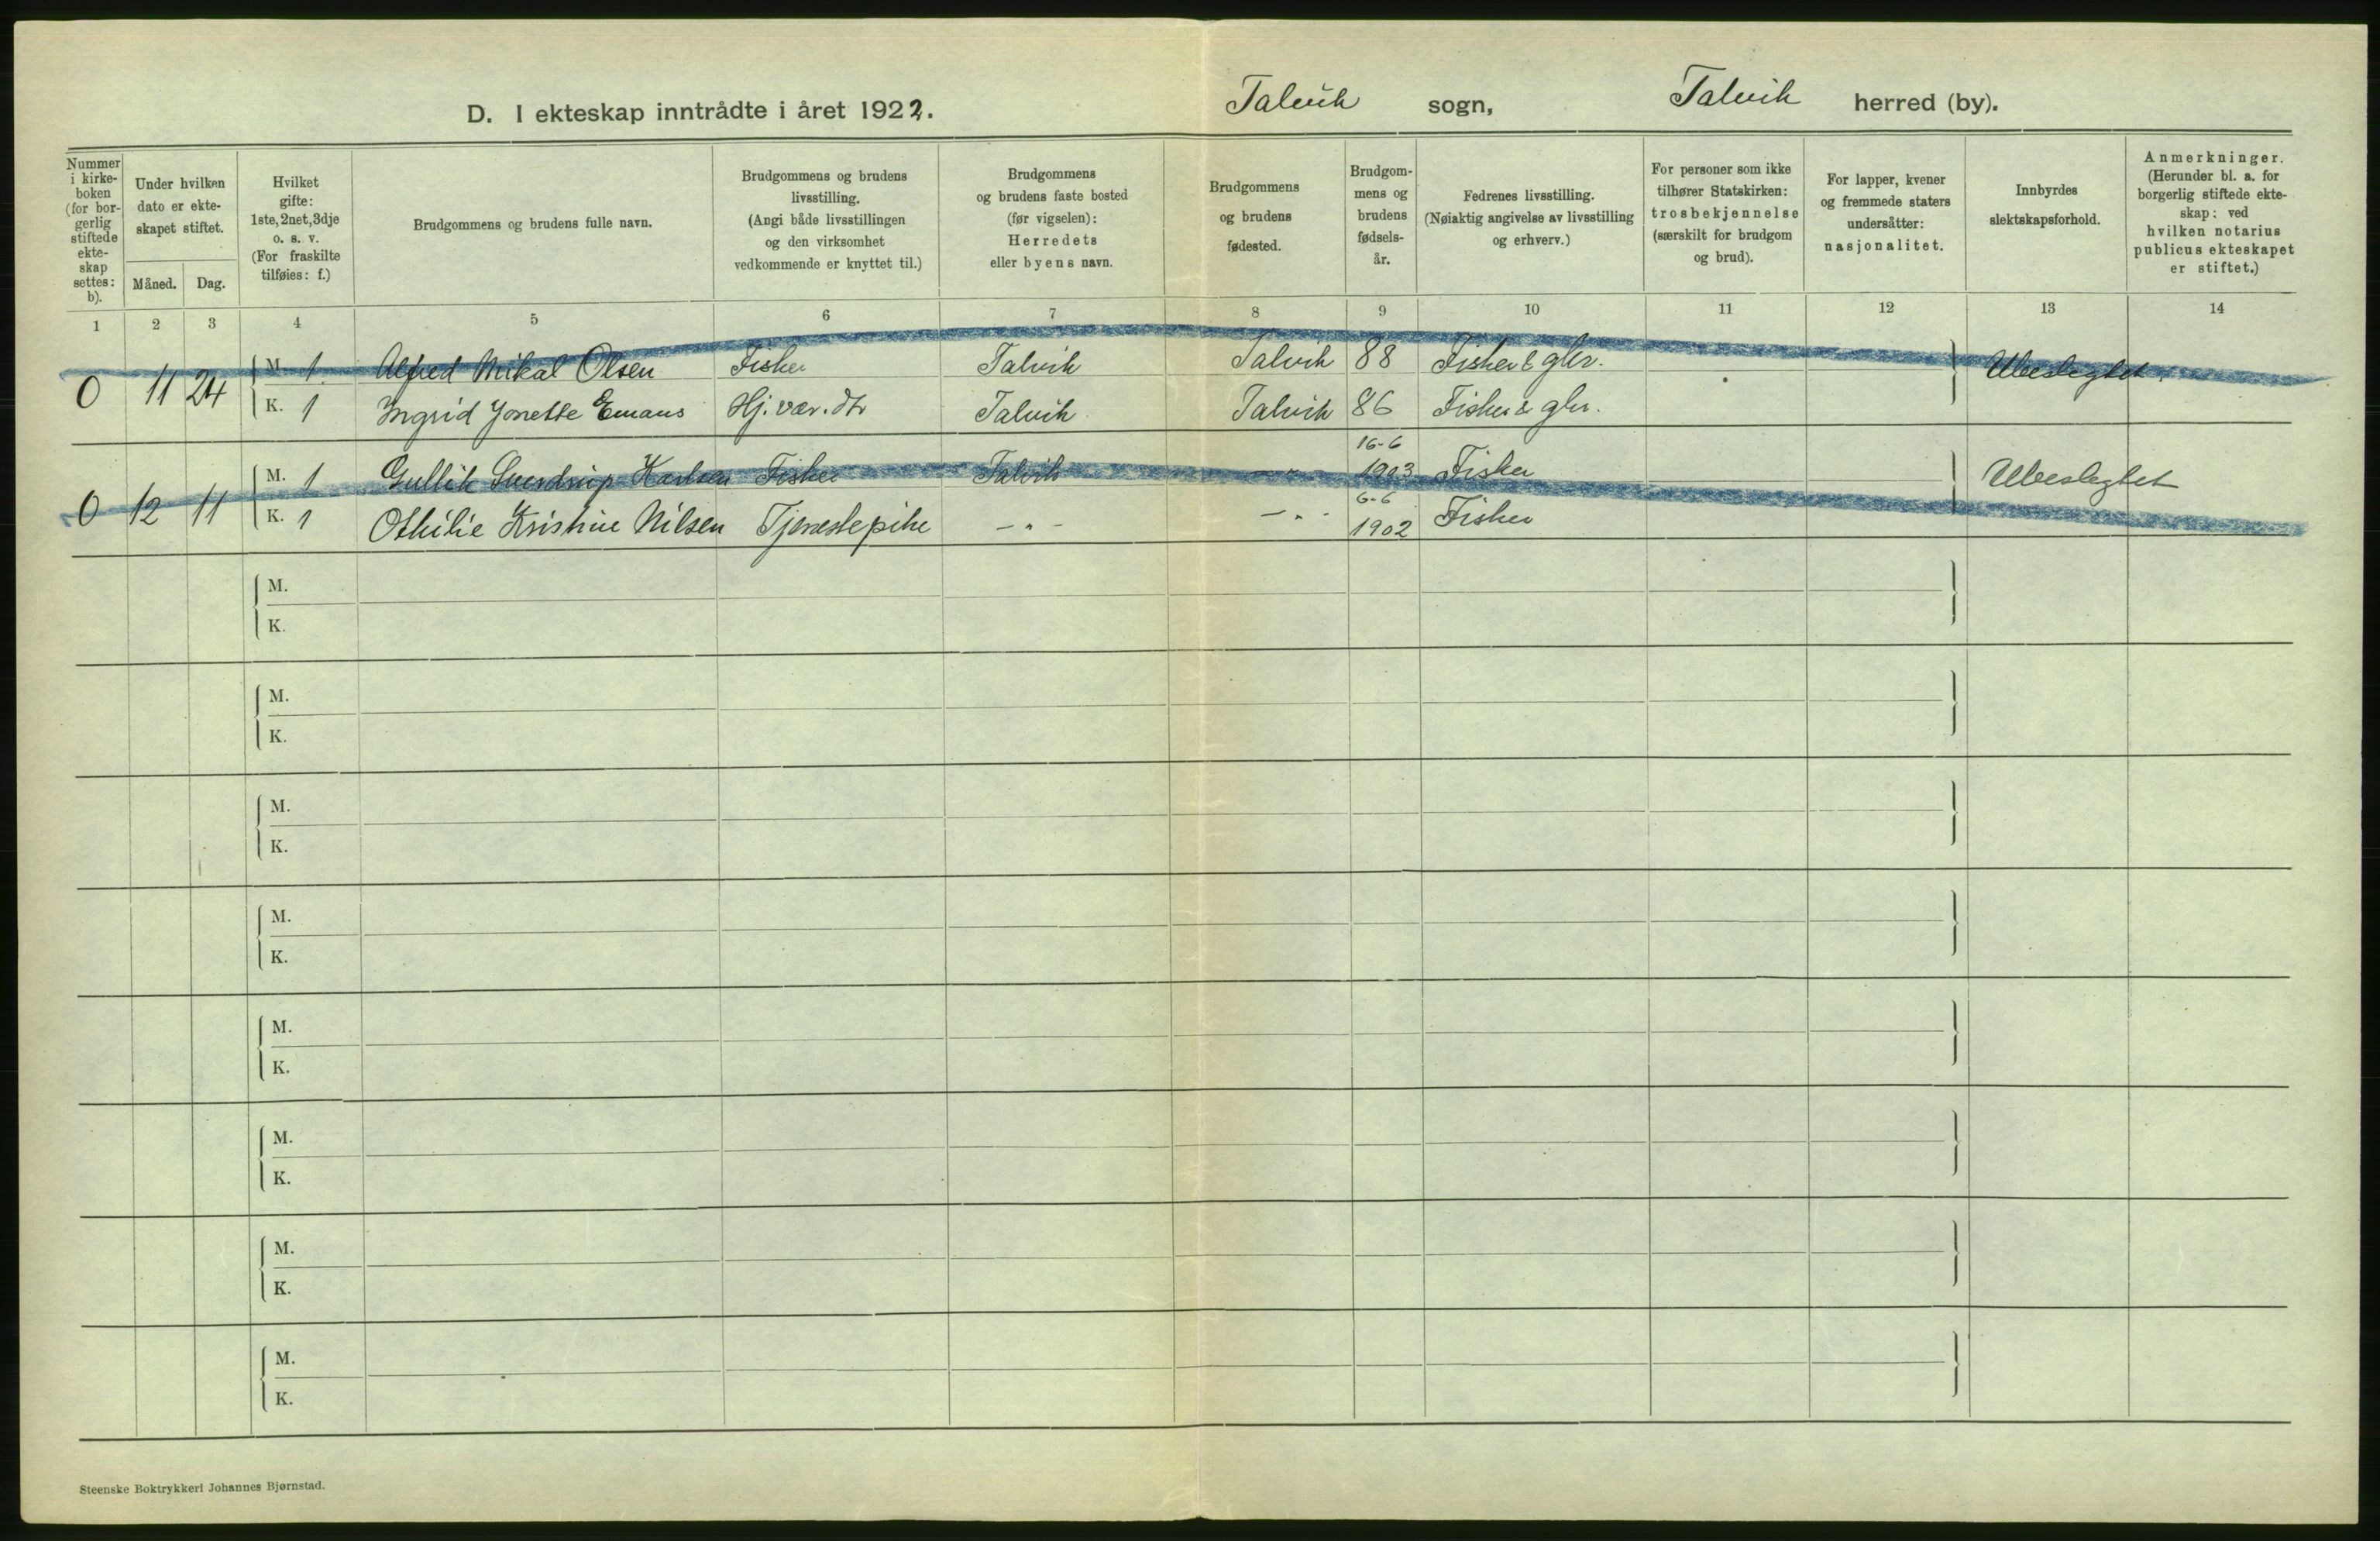 D. I ekteskap inntrådte i året 1922. Talvik sogn, Talvik herred (by).
Nummer i kirke-boken (for bor-gerlig stiftede ekte-skap settes: b).
Under hvilken dato er ekte-skapet stiftet.
Måned. Dag.
Hvilket gifte: 1ste, 2net, 3dje o. s. v. (For fraskilte tilføies: f.)
Brudgommens og brudens fulle navn.
Brudgommens og brudens livsstilling. (Angi både livsstillingen og den virksomhet vedkommende er knyttet til.)
Brudgommens og brudens faste bosted (før vigselen): Herredets eller byens navn.
Brudgommens og brudens fødested.
Brudgom-mens og brudens fødsels-år.
Fedrenes livsstilling. (Nøiaktig angivelse av livsstilling og erhverv.)
For personer som ikke tilhører Statskirken: trosbekjennelse (særskilt for brudgom og brud).
For lapper, kvener og fremmede staters undersåtter: nasjonalitet.
Innbyrdes slektskapsforhold.
Anmerkninger. (Herunder bl. a. for borgerlig stiftede ekte-skap: ved hvilken notarius publicus ekteskapet er stiftet.)
1 2 3 4 5 6 7 8 9 10 11 12 13 14
M. 1 Alfred Mikal Olsen Fisker Talvik Talvik 88 Fisker & gbr. Ubeslegtet.
0 11 24
K. 1 Ingrid Jonette Emaus Hj. vær. dtr Talvik Talvik 86 Fisker & gbr.
16-6
M. 1 Gullik Sverdrup Karlsen Fisker Talvik - " - 1903 Fisker Ubeslegtet
0 12 11
6-6
K. 1 Othilie Kristine Nilsen Tjenestepike - " - - " - 1902 Fisker
M.
K.
M.
K.
M.
K.
M.
K.
M.
K.
M.
K.
M.
K.
M.
K.
Steenske Boktrykkeri Johannes Bjørnstad.